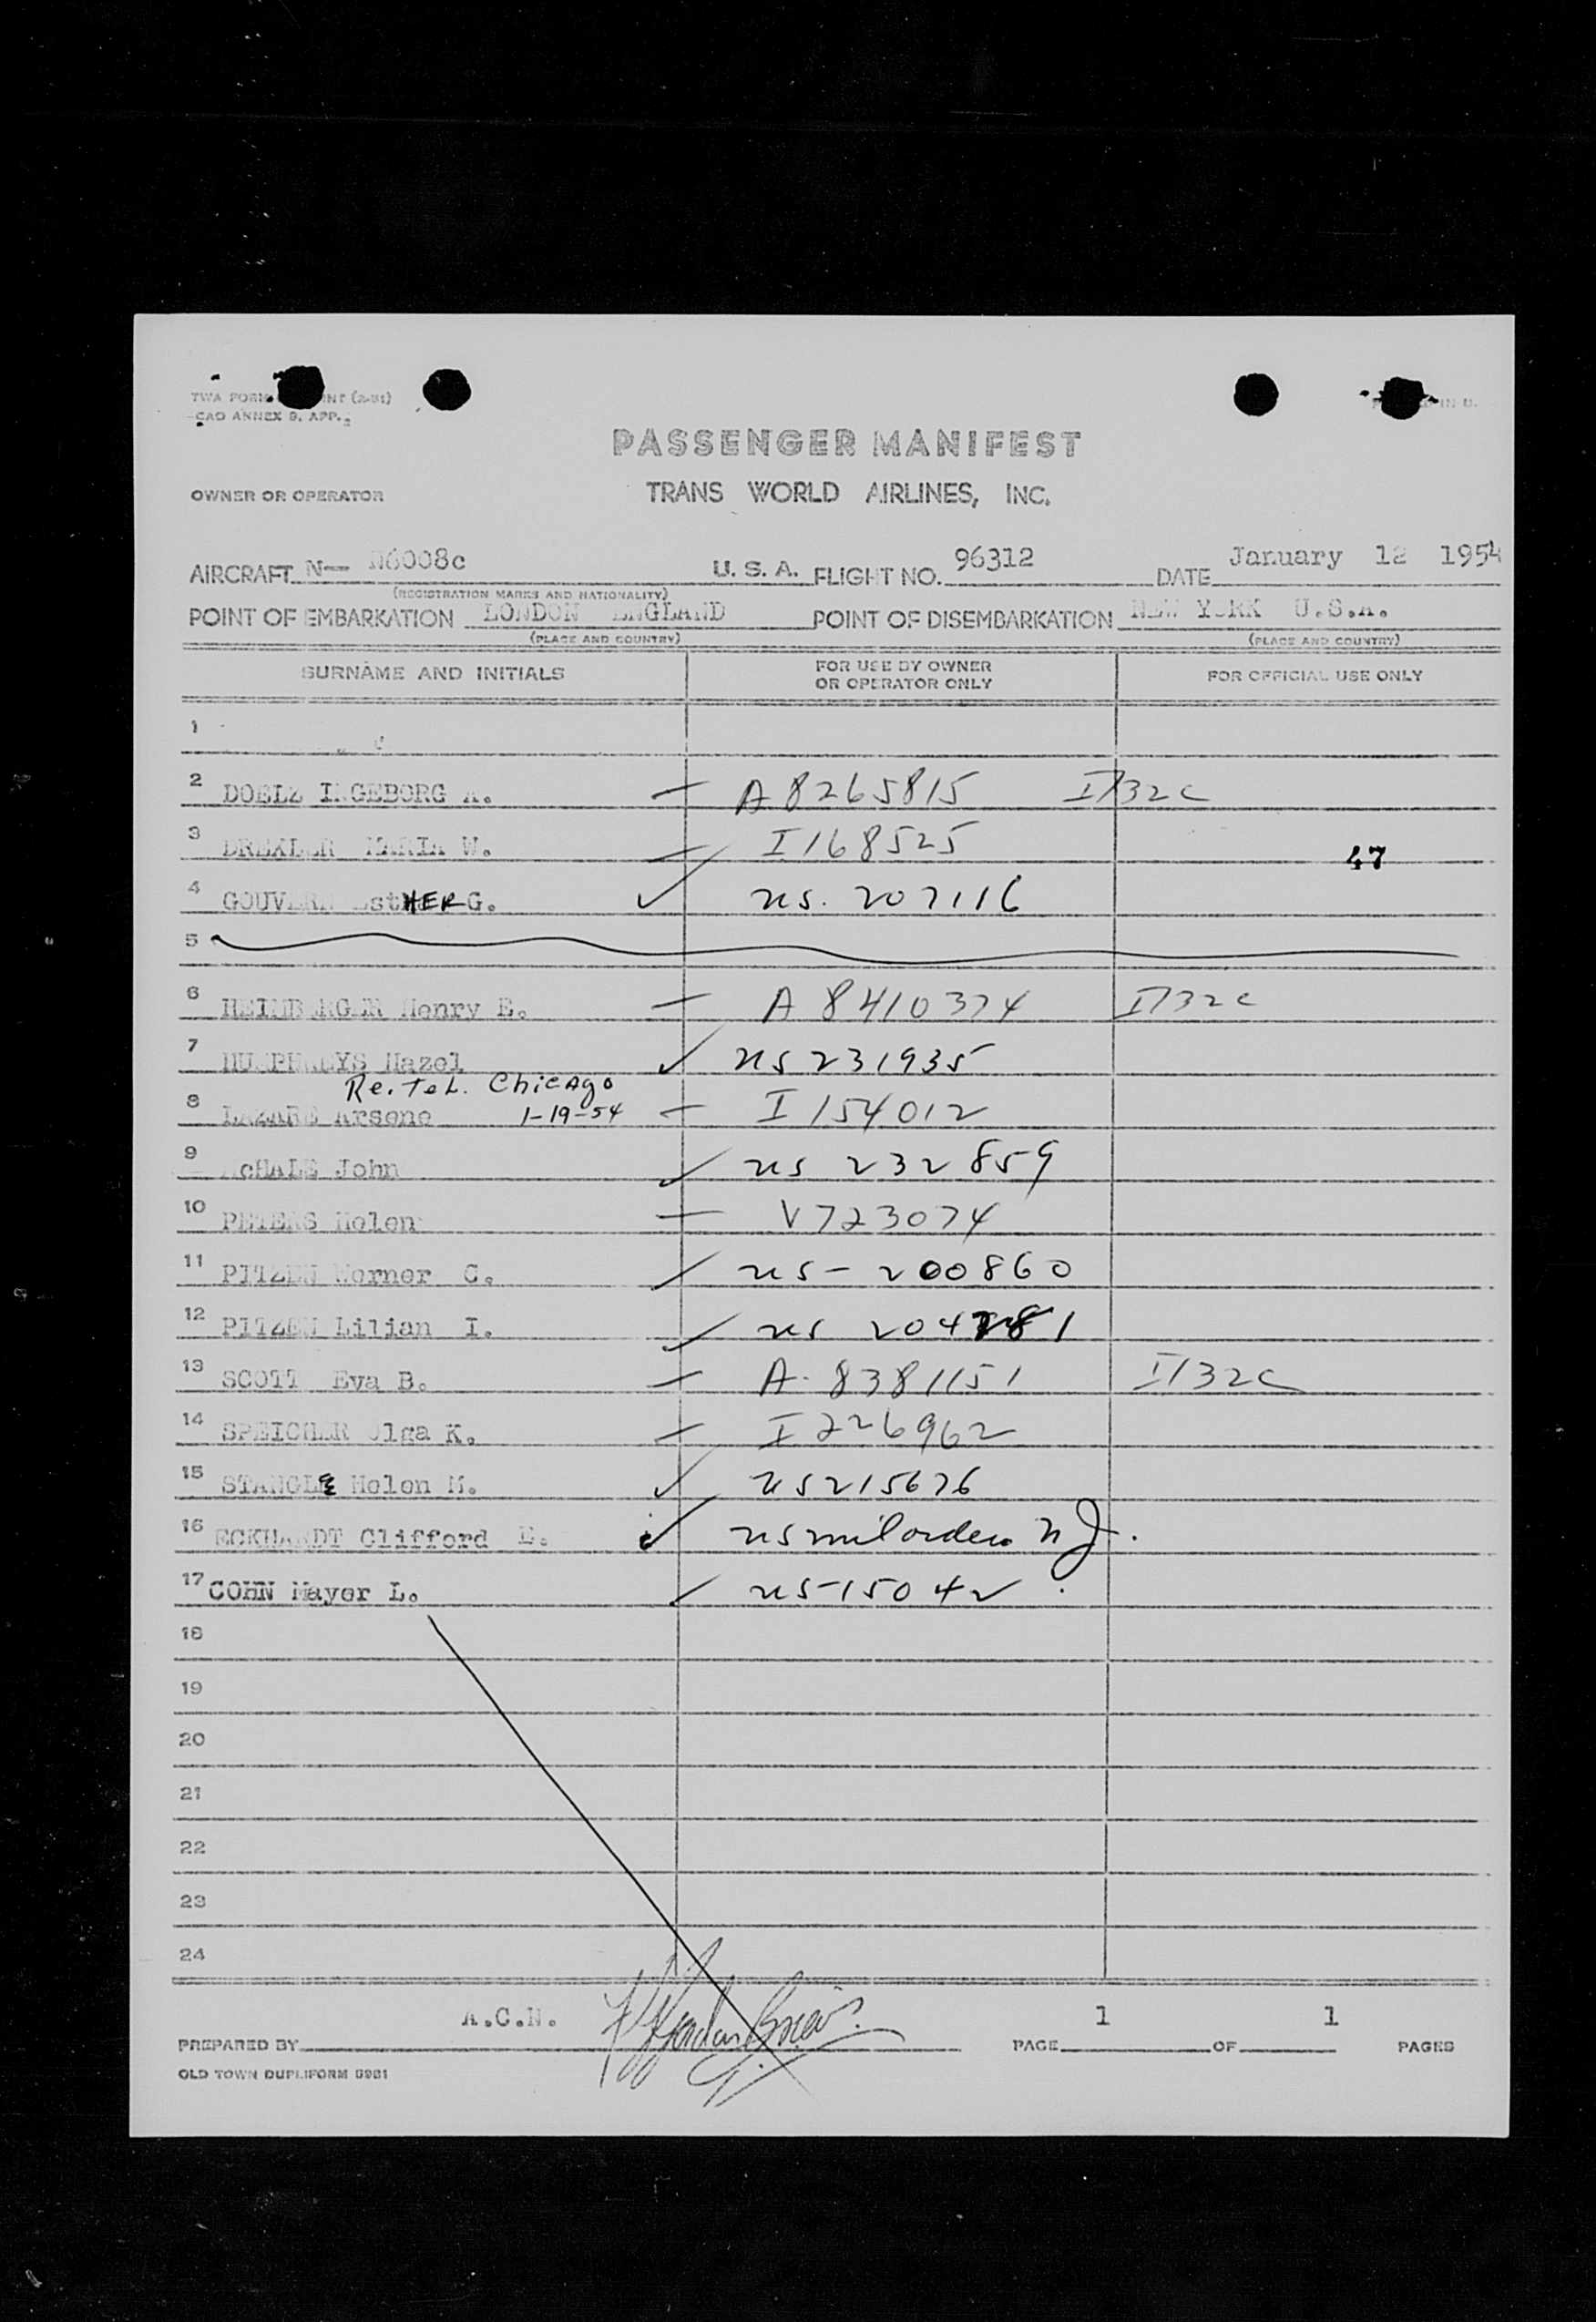 TWA FORM INT (2-51)
ICAO ANNEX 9, APP. 2
IN U.
PASSENGER MANIFEST
OWNER OR OPERATOR TRANS WORLD AIRLINES, INC.
AIRCRAFT N— N6008c U. S. A. FLIGHT NO. 96312 DATE January 12 1954
(REGISTRATION MARKS AND NATIONALITY)
POINT OF EMBARKATION LONDON ENGLAND POINT OF DISEMBARKATION NEW YORK U.S.A.
(PLACE AND COUNTRY) (PLACE AND COUNTRY)
SURNAME AND INITIALS FOR USE BY OWNER OR OPERATOR ONLY FOR OFFICIAL USE ONLY
1
2 DOELZ INGEBORG A. — A 8265815 I732c
3 DREXLER MARIA W. — I 168525 47
4 GOUVERN EstHER G. ✓ US. 207116
5
6 HEIMBERGER Henry E. — A 8410374 I732c
7 HUMPHREYS Hazel ✓ US 231935
Re. Tel. Chicago
8 LAZARE Arsene 1-19-54 — I 154012
9 McHALE John ✓ US 232859
10 PETERS Helen — V723074
11 PITZEN Werner C. ✓ US- 200860
12 PITZEN Lilian I. ✓ US
13 SCOTT Eva B. — A- 8381151 I732c
14 SPEICHER Olga K. — I 226962
15 STANGLE Helen M. ✓ US215676
16 ECKHARDT Clifford E. ✓ US mil orders NJ.
17 COHN Mayer L. ✓ US-15042
18
19
20
21
22
23
24
PREPARED BY A.C.N. PAGE 1 OF 1 PAGES
OLD TOWN DUPLIFORM 5981